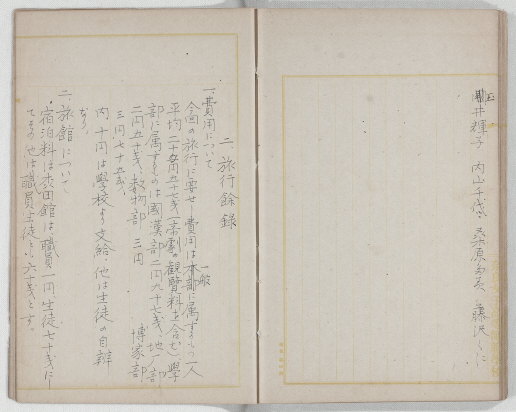 井輝子 内山千代 桑原 藤沢くに
二旅行餘録
一、費用について
今回の旅行に要せし費用は本部に属するもの一人
一般
平均二十五円五十七銭(帝劇の観覧料を含む)學
部に属するものは國漢部二円九十七銭、地一部
二円五十銭、数物部 三円 博家部
三円七十五銭、
内 十円は學校より支給、他は生徒の自辨
なり。
二 旅館について
宿泊料は表田館は職員一円生徒七十銭に
てその他は職員生徒とも六十銭とす。